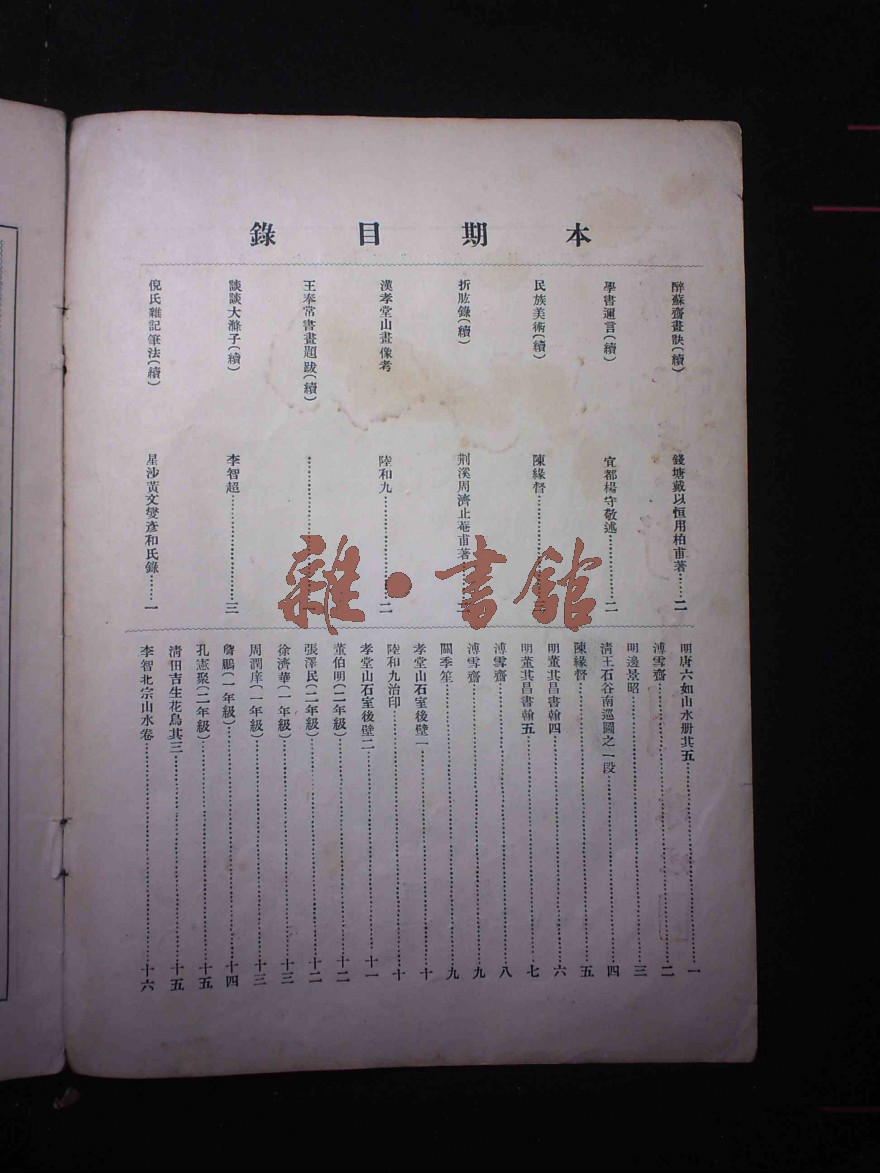 本期目錄
醉蘇齋畫訣(續) 錢塘戴以恒用柏甫著……二
學書邇言(續) 宜都楊守敬述……二
民族美術(續) 陳緣督……
折肱錄(續) 荆溪周濟止菴甫著……
漢孝堂山畫像考 陸和九……二
王奉常書畫題跋(續) ……
談談大滌子(續) 李智超……三
倪氏雜記筆法(續) 星沙黃文燮彥和氏錄……一
明唐六如山水册其五……一
溥雪齋……二
明邊景昭……三
清王石谷南巡圖之一段……四
陳緣督……五
明董其昌書翰四……六
明董其昌書翰五……七
溥雪齋……八
溥雪齋……九
關季笙……九
孝堂山石室後壁一……十
陸和九治印……十
孝堂山石室後壁二……十一
董伯明(二年級)……十二
張澤民(二年級)……十二
徐濟華(一年級)……十三
周潤庠(一年級)……十三
詹鵬(一年級)……十四
孔憲聚(二年級)……十五
清田吉生花鳥其三……十五
李智北宗山水卷……十六
雜·書館